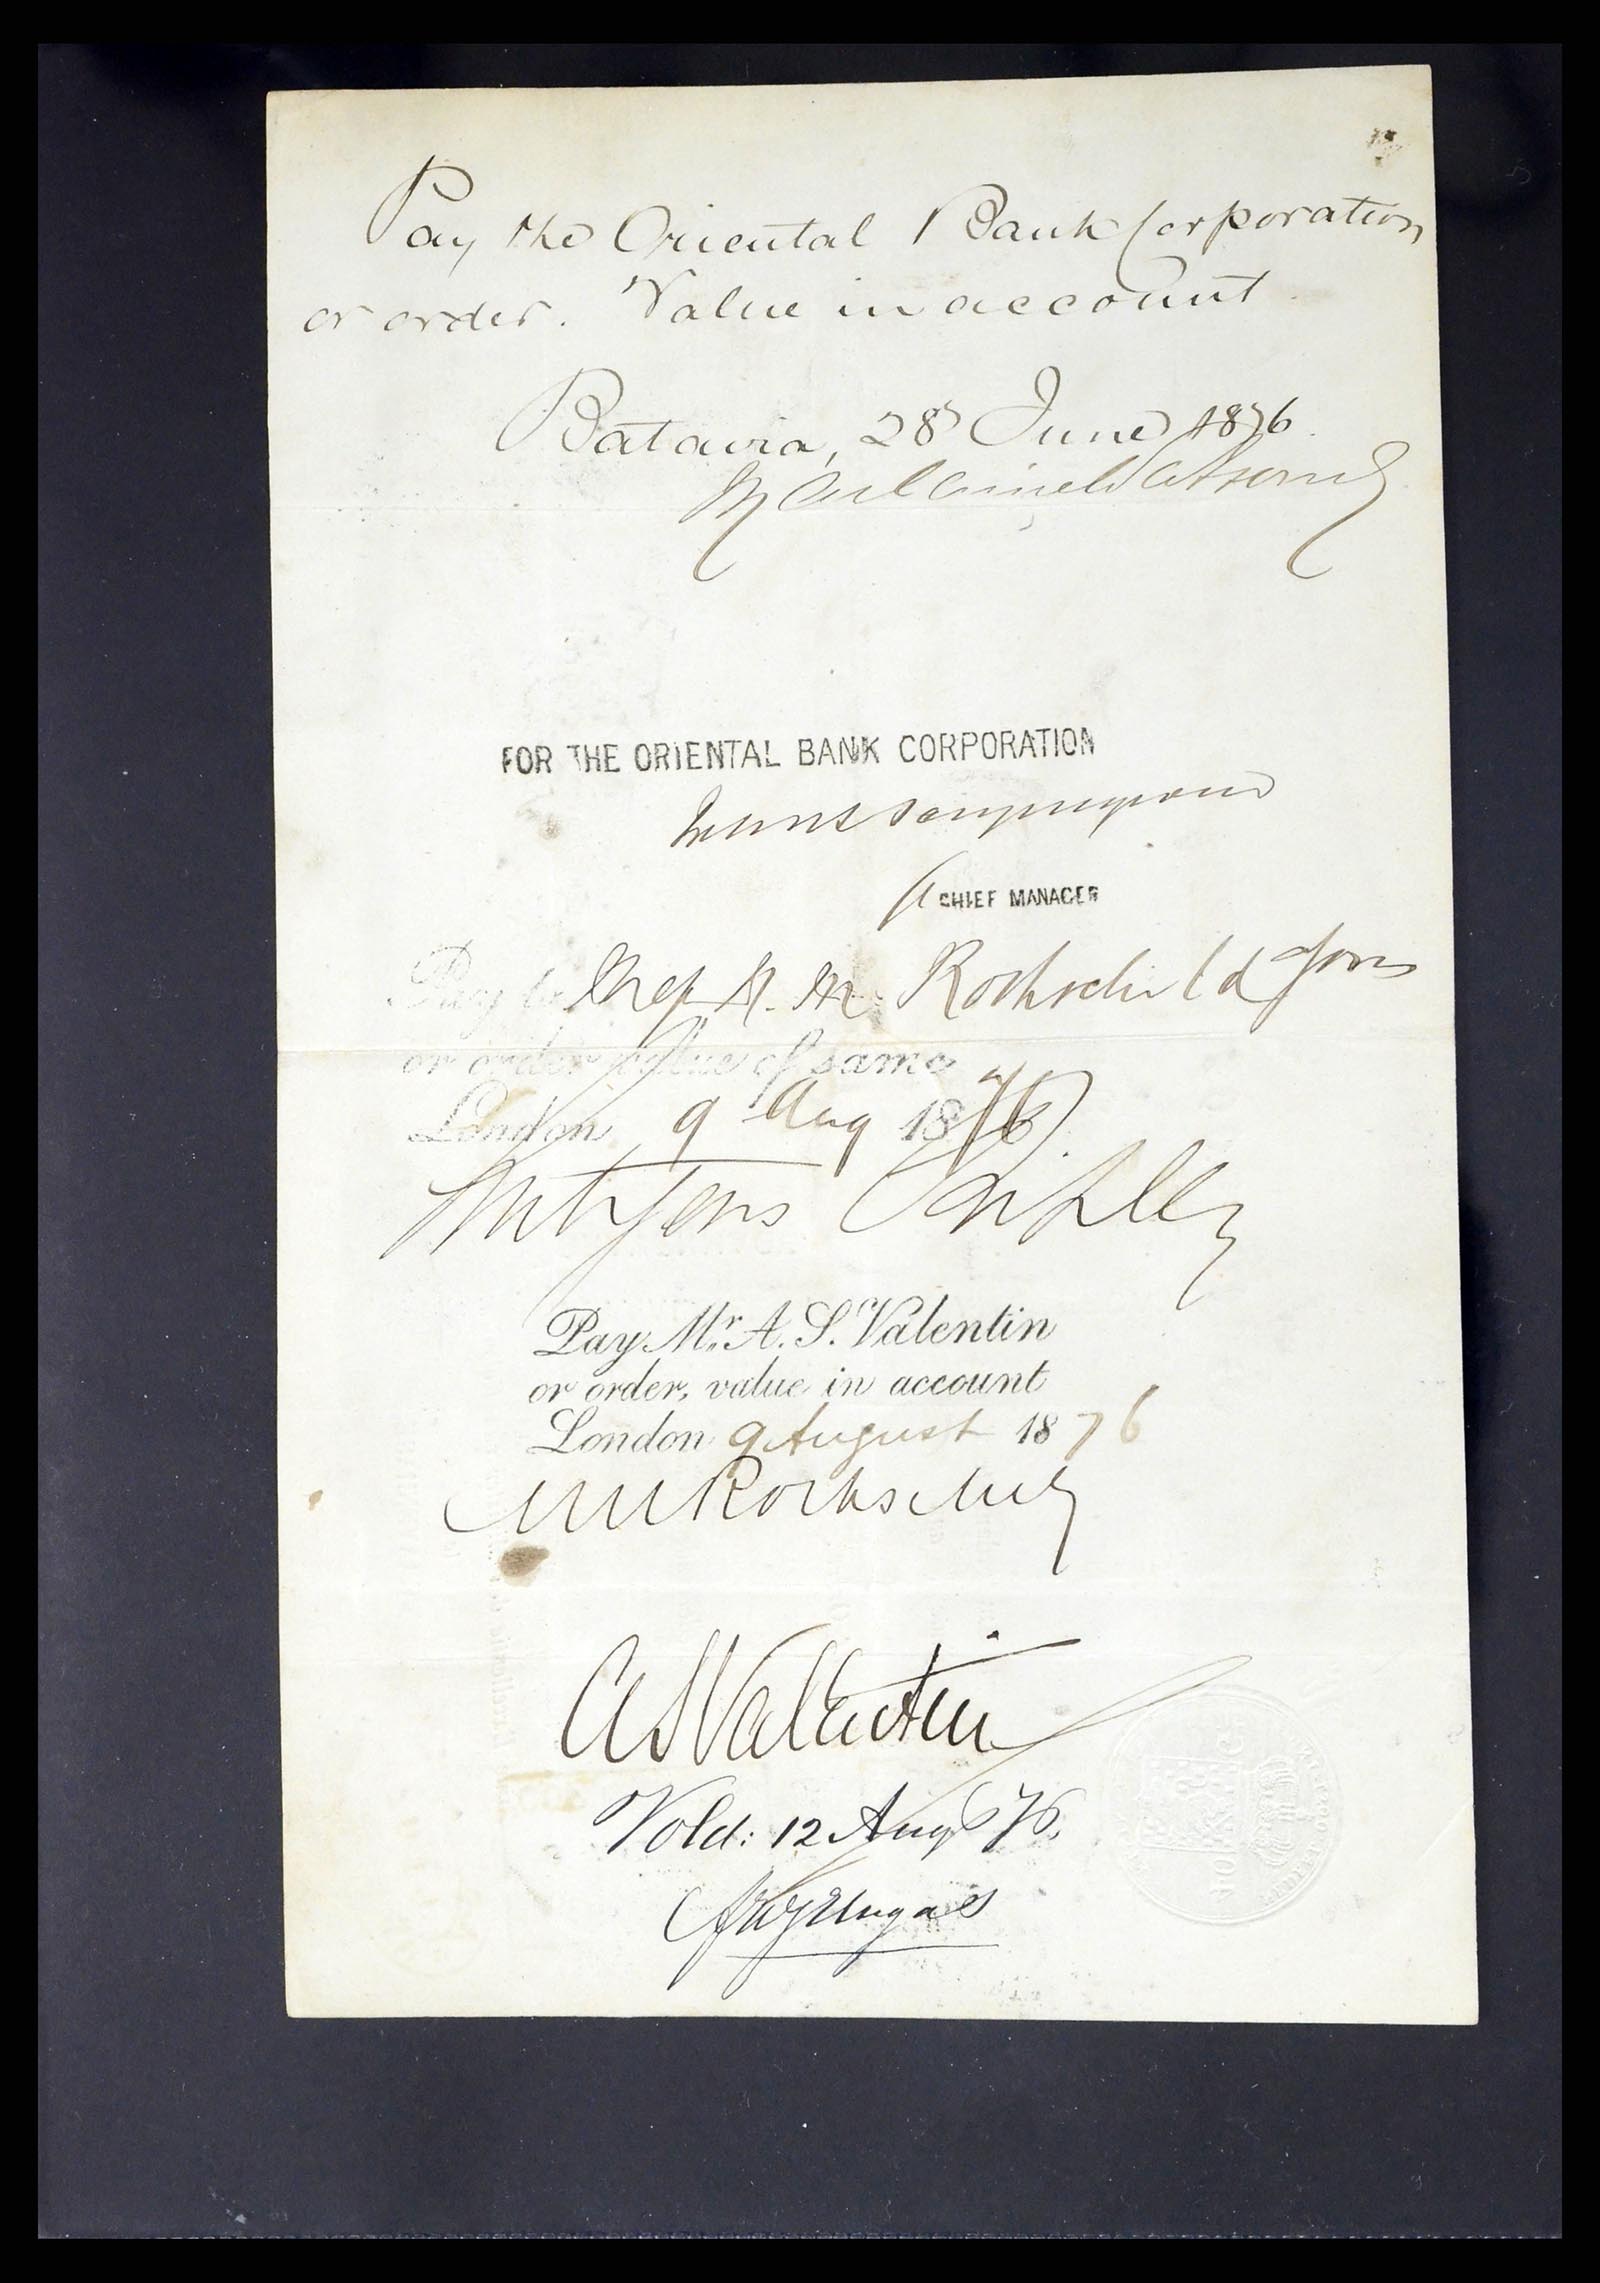 Pay the Oriental Bank Corporation
or order. Value in account
Batavia, 28 June 1876
Maclaine Watson &
FOR THE ORIENTAL BANK CORPORATION
CHIEF MANAGER
Pay to N. M. Rothschild & Sons
or order value of same
London 9 Aug 1876
Pay Mr. A. S. Valentin
or order, value in account
London 9 August 1876
NM Rothschild
AS Valentin
Vold: 12 Aug 76.